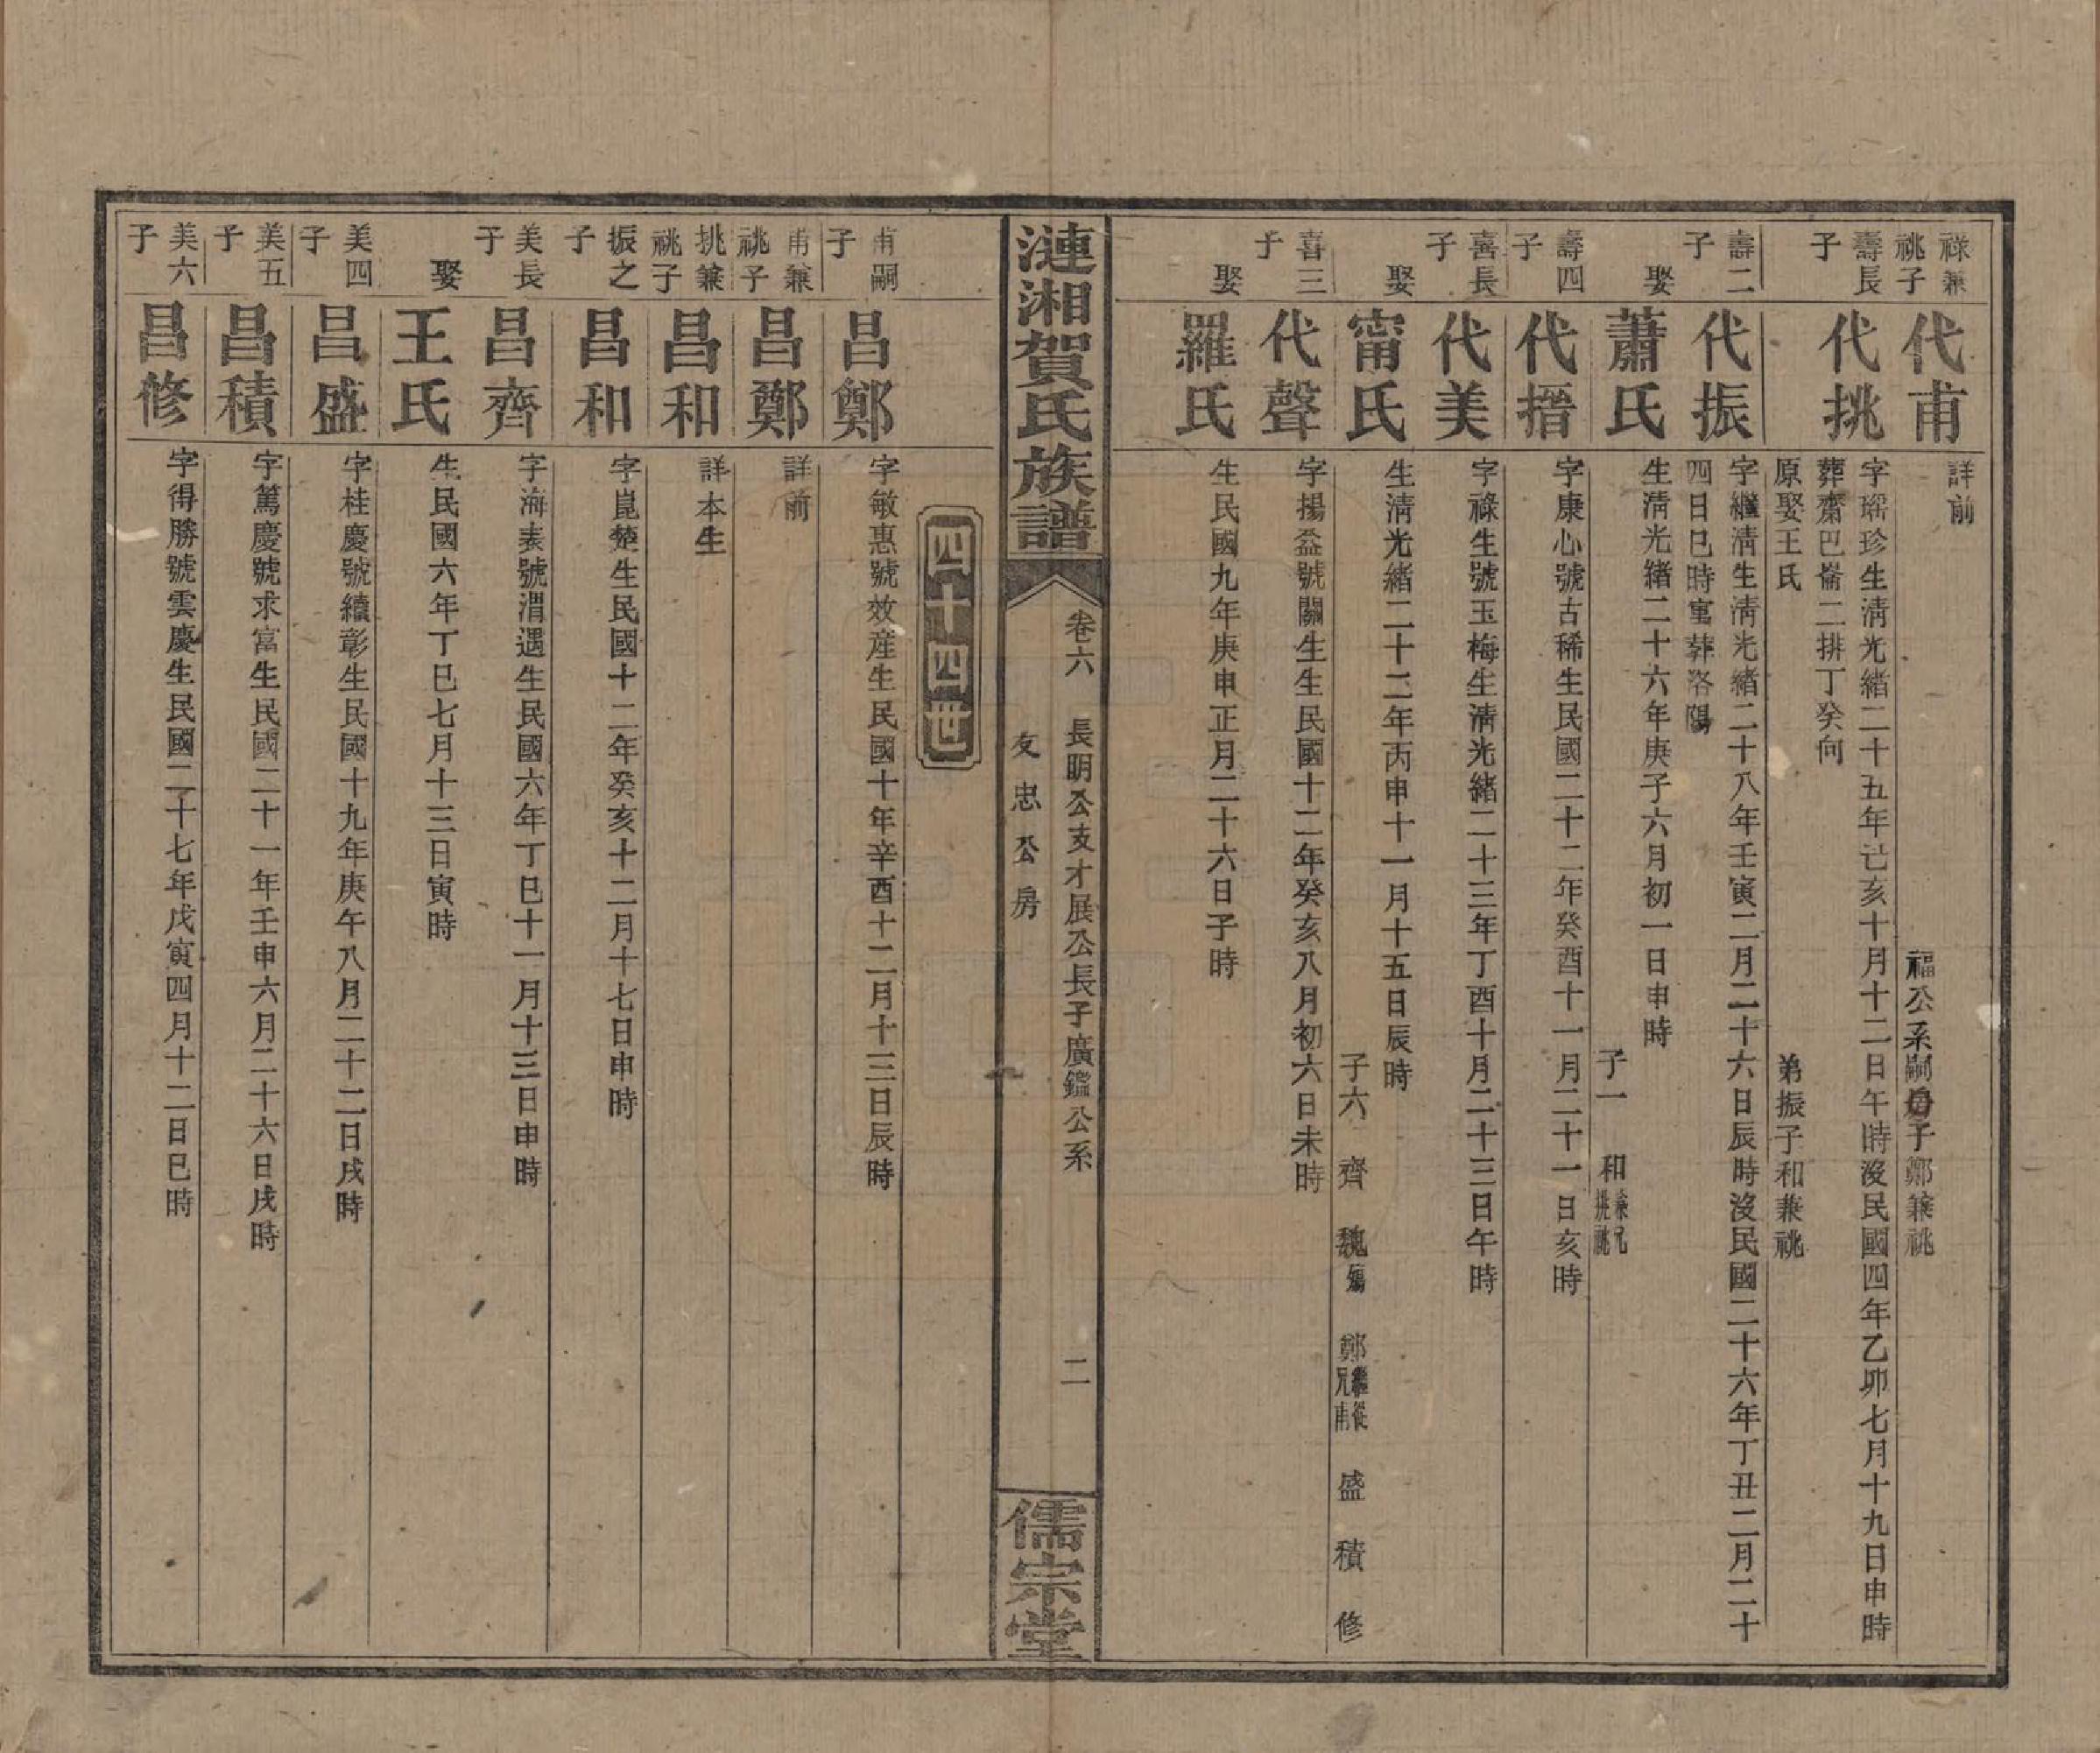 祿兼祧子
代甫
詳前
福公系嗣子鄭兼祧
壽長子
代挑
字瑶珍生清光緒二十五年己亥十月十二日午時沒民國四年乙卯七月十九日申時
葬齋巴崙二排丁癸向
原娶王氏
弟振子和兼祧
壽二子
代振
字繼清生清光緒二十八年壬寅二月二十六日辰時沒民國二十六年丁丑二月二十
四日巳時寓葬洛陽
娶
蕭氏
生清光緒二十六年庚子六月初一日申時
子一 和兼祧兄挑
壽四子
代搢
字康心號古稀生民國二十二年癸酉十一月二十一日亥時
喜長子
代美
字祿生號玉梅生清光緒二十三年丁酉十月二十三日午時
娶
甯氏
生清光緒二十二年丙申十一月十五日辰時
子六 齊 魏殤 鄭繼從兄甫 盛 積 修
喜三子
代聲
字揚盃號關生生民國十二年癸亥八月初六日未時
娶
羅氏
生民國九年庚申正月二十六日子時
漣湘賀氏族譜
卷六 長明公支才展公長子廣鑑公系
友忠公房
二
儒宗堂
四十四世
甫嗣子
昌鄭
字敏惠號效産生民國十年辛酉十二月十三日辰時
甫兼祧子
昌鄭
詳前
挑兼祧子
昌和
詳本生
振之子
昌和
字崑楚生民國十二年癸亥十二月十七日申時
美長子
昌齊
字海表號渭遇生民國六年丁巳十一月十三日申時
娶
王氏
生民國六年丁巳七月十三日寅時
美四子
昌盛
字桂慶號續彰生民國十九年庚午八月二十二日戌時
美五子
昌積
字篤慶號求富生民國二十一年壬申六月二十六日戌時
美六子
昌修
字得勝號雲慶生民國二十七年戊寅四月十二日巳時